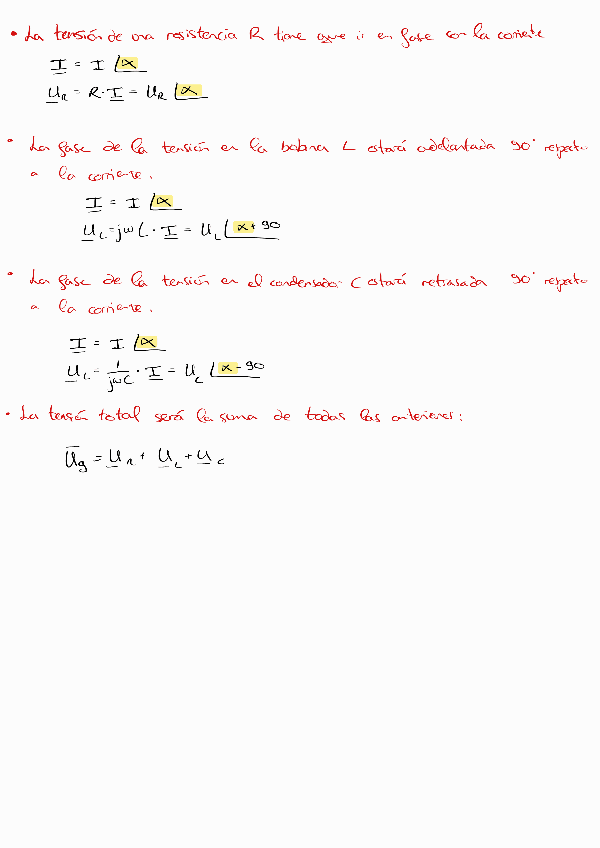 • La tensión de una resistencia R tiene que ir en fase con la corriente
I = I ∠α
U_R = R · I = U_R ∠α
• La fase de la tensión en la bobina L estará adelantada 90° respecto
a la corriente.
I = I ∠α
U_L = jωL · I = U_L ∠α + 90
• La fase de la tensión en el condensador C estará retrasada 90° respecto
a la corriente.
I = I ∠α
U_C = 1/jωC · I = U_C ∠α - 90
• La tensión total será la suma de todas las anteriores:
U_g = U_R + U_L + U_C